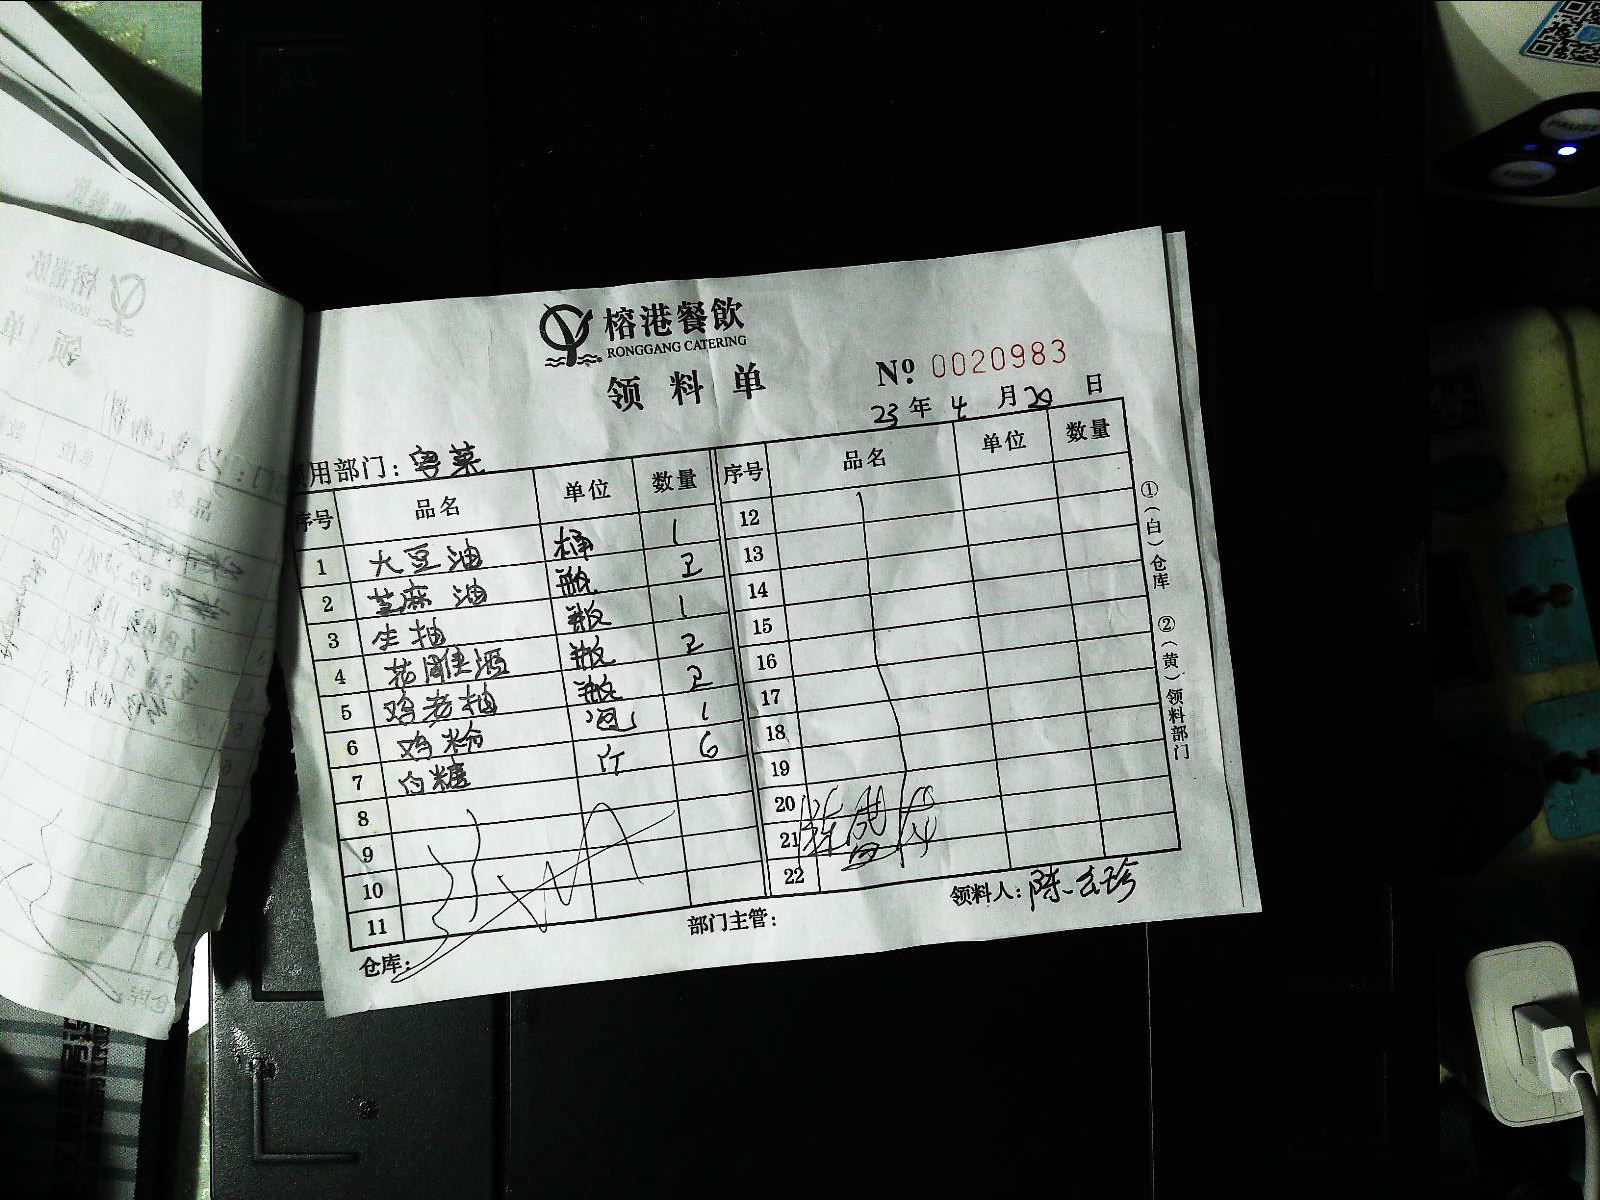 榕港餐飲
RONGGANG CATERING
领料单
№ 0020983
23年4月20日
领用部门：粤菜
序号 品名 单位 数量 序号 品名 单位 数量
1 大豆油 桶 1 12
2 芝麻油 瓶 2 13
3 生抽 瓶 1 14
4 花雕酒 瓶 2 15
5 鸡老抽 瓶 2 16
6 鸡粉 包 1 17
7 白糖 斤 6 18
8 19
9 20
10 21
11 22
仓库： 部门主管： 领料人：陈
①（白）仓库 ②（黄）领料部门